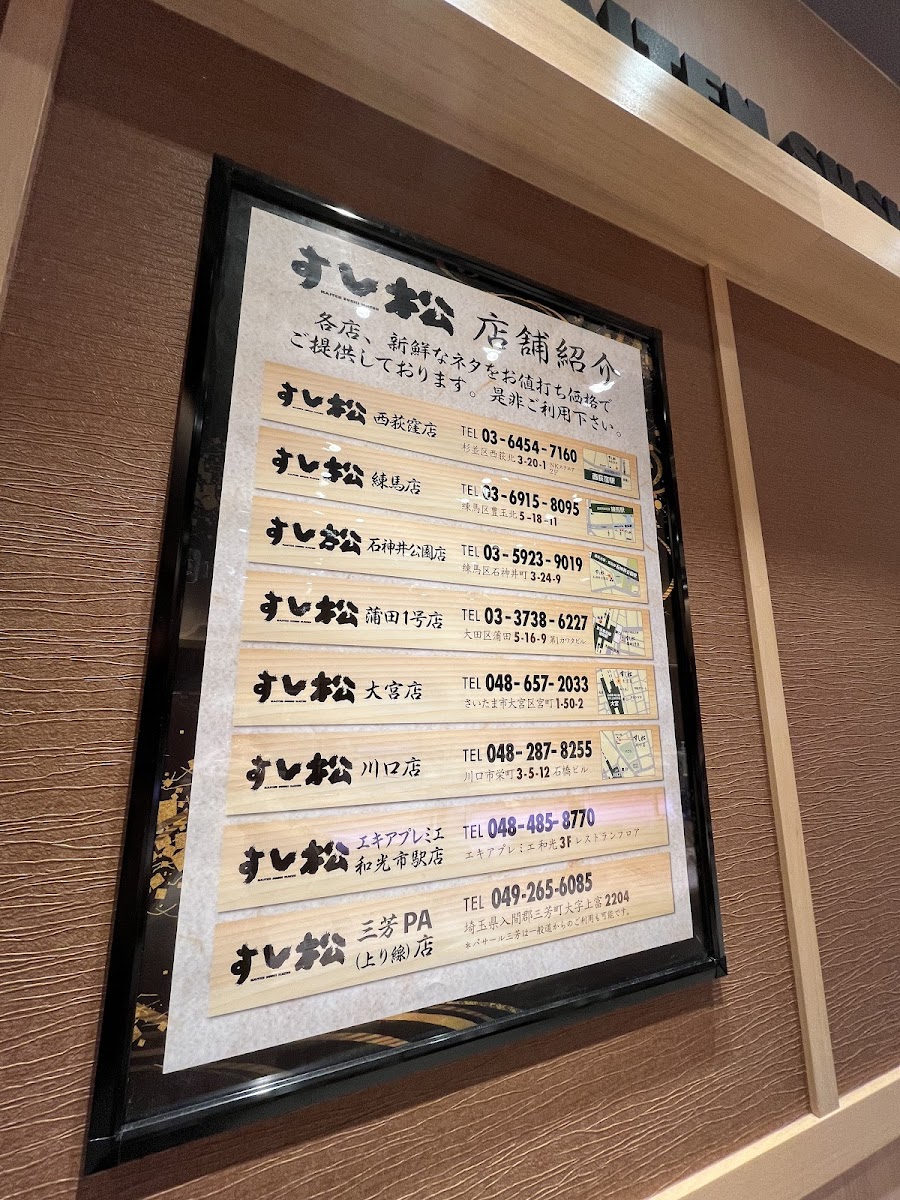 AITEN SUSH
すし松 店舗紹介
KAITEN SUSHI
各店、新鮮なネタをお値打ち価格で
ご提供しております。是非ご利用下さい。
すし松 西荻窪店 TEL 03-6454-7160
杉並区西荻北3-20-1
西荻窪駅
すし松 練馬店 TEL 03-6915-8095
練馬区豊玉北5-18-11
すし松 石神井公園店 TEL 03-5923-9019
練馬区石神井町3-24-9
すし松 蒲田1号店 TEL 03-3738-6227
大田区蒲田5-16-9 第1カツタビル
すし松 大宮店 TEL 048-657-2033
さいたま市大宮区宮町1-50-2
すし松 川口店 TEL 048-287-8255
川口市栄町3-5-12 石橋ビル
すし松 エキアプレミエ和光市駅店 TEL 048-485-8770
エキアプレミエ和光3F レストランフロア
すし松 三芳PA(上り線)店 TEL 049-265-6085
埼玉県入間郡三芳町大字上富2204
*パサール三芳は一般道からのご利用も可能です。